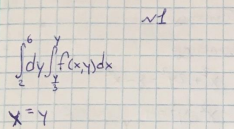 №1
∫₂⁶ dy ∫_{y/3}^{y} f(x,y)dx
x = y